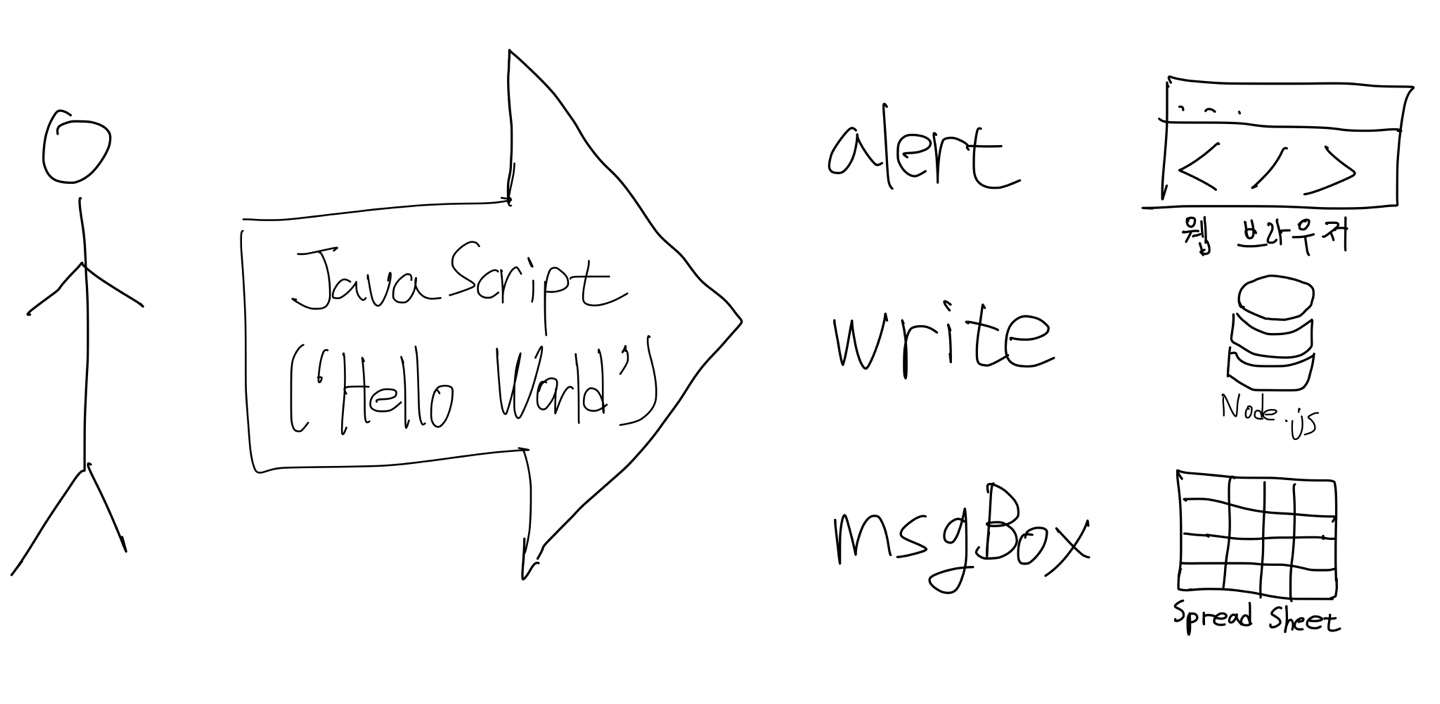 JavaScript
('Hello World')
alert
< / >
웹 브라우저
write
Node.js
msgBox
Spread Sheet